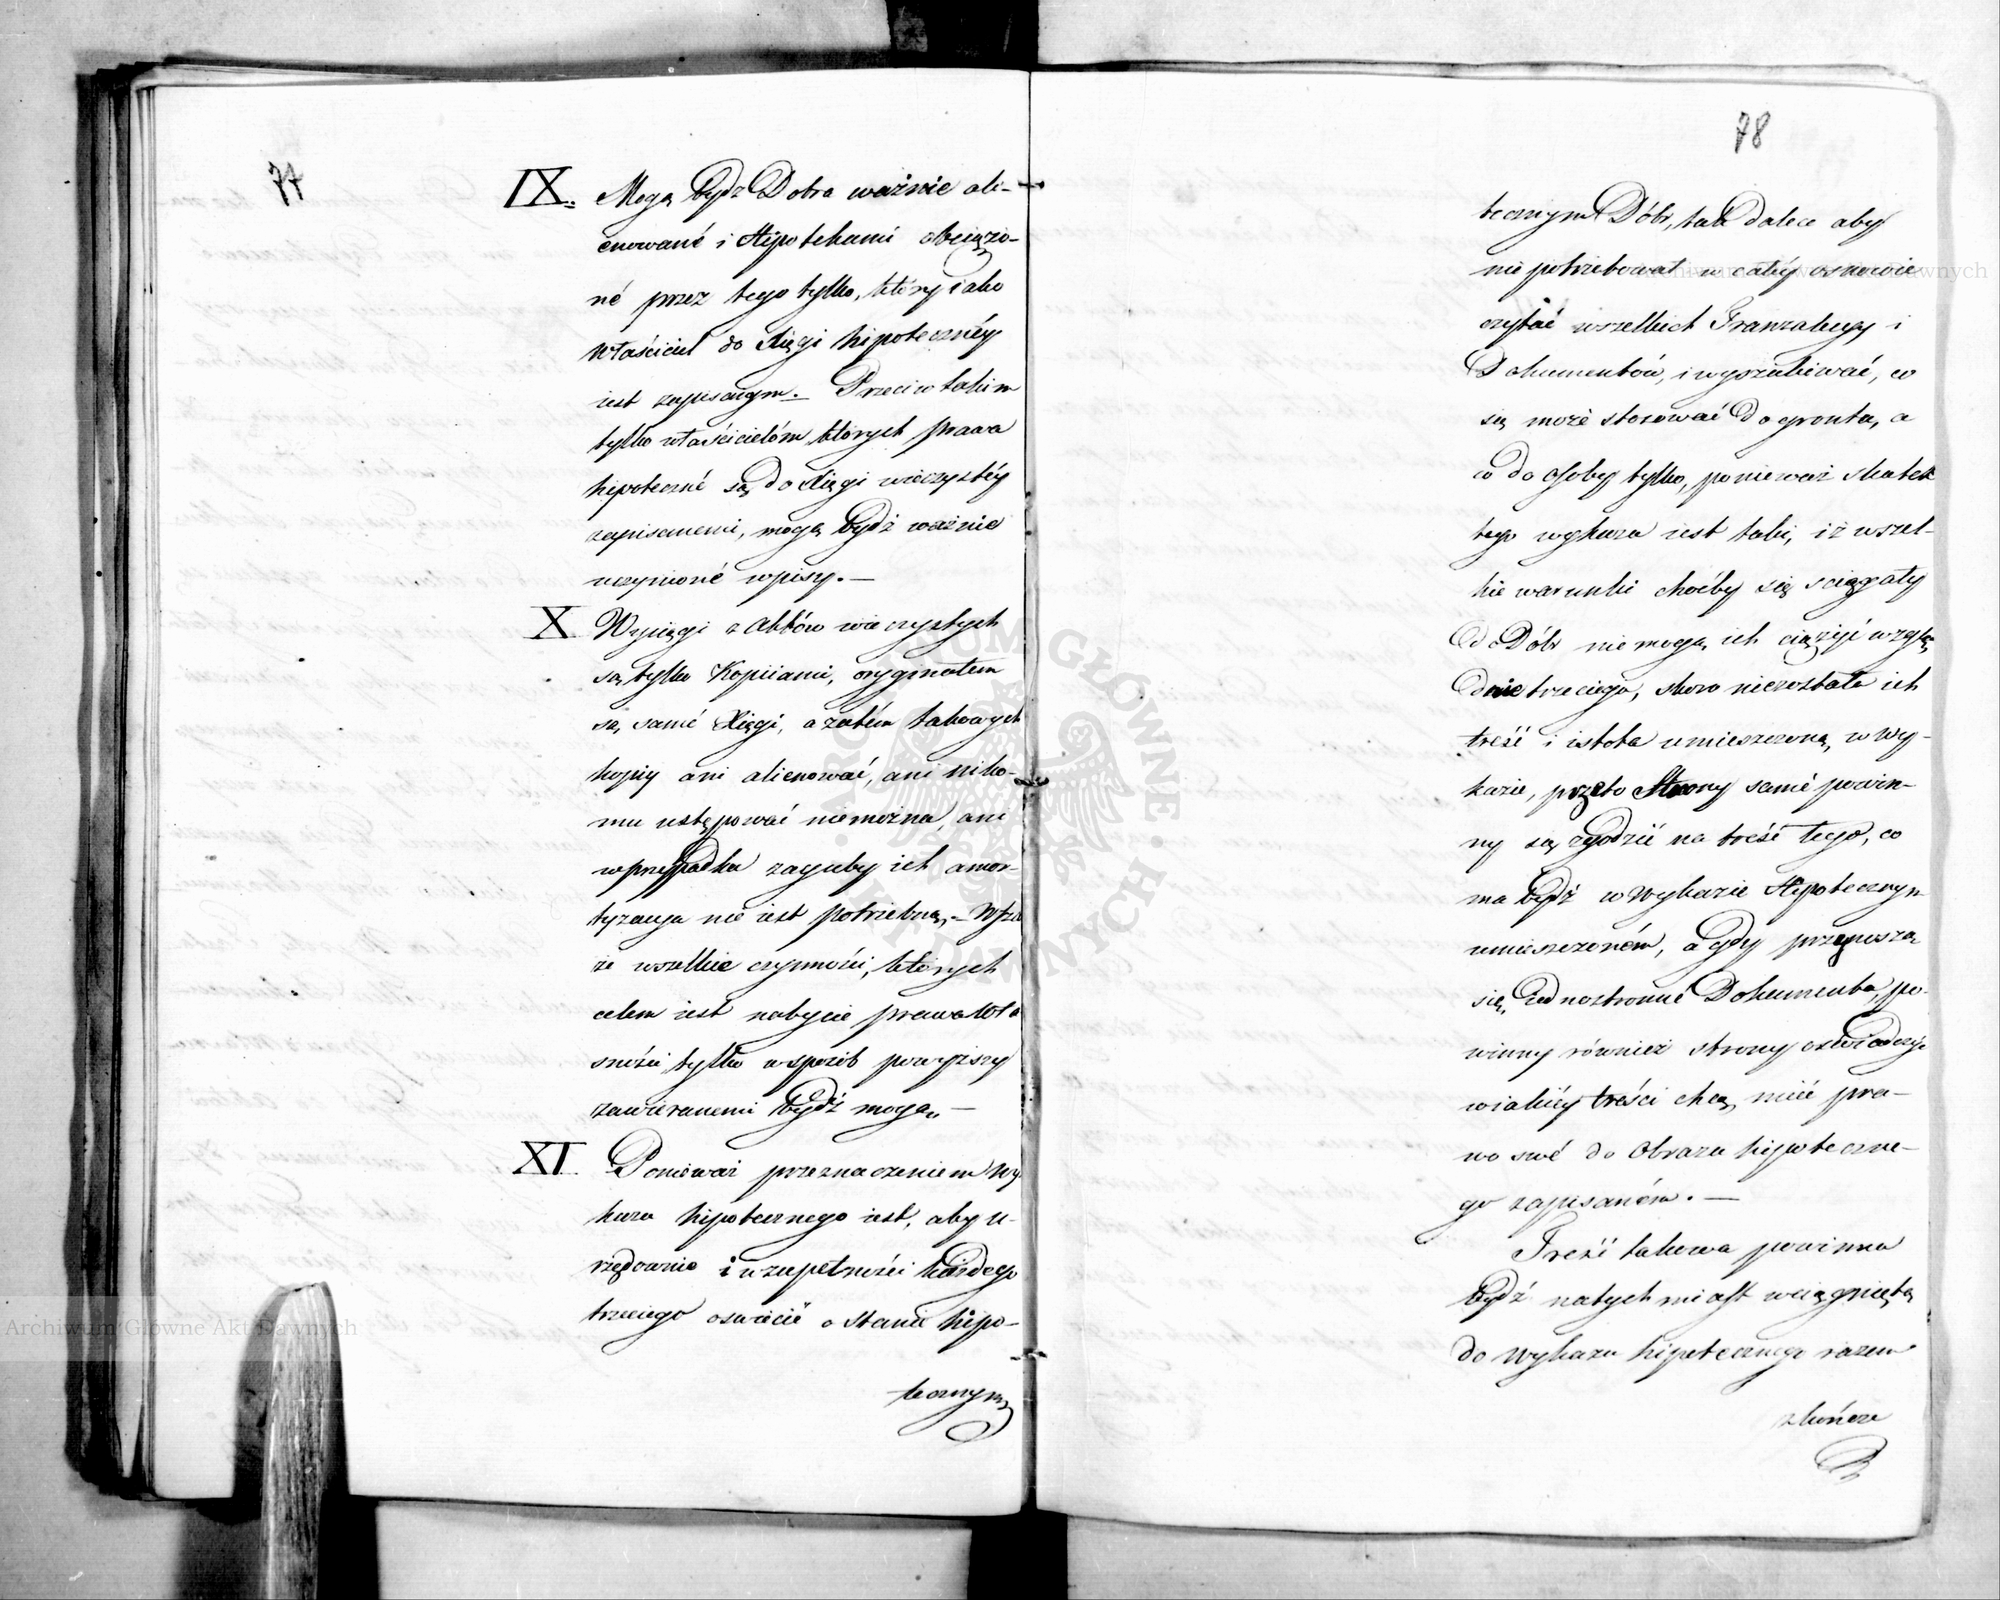 77
IX. Mogą bydź Dobra ważnie ali-
enowané i Hipotekami obciążo-
né przez tego tylko, który iako
właściciel do Xięgi hipotecznéy
iest zapisanym. – Przeciw takim
tylko właścicielóm, których prawa
hipoteczné są do Xięgi wieczystéy
zapisanemi, mogą bydź ważnie
uczynioné wpisy. –
X Wyciągi z aktów wieczystych
są tylko kopiiami, oryginałem
są samé Xięgi, a zatém takowych
kopiy ani alienować, ani niko-
mu ustępować nie można, ani
w przypadku zaguby ich amor-
tyzacya nie iest potrzebną, –
że wszelkie czynności, których
celem iest nabycie prawa wła
sności tylko w sposób powyższy
zawieranemi bydź mogą. –
XI Ponieważ przeznaczeniem wy-
kazu hipotecznego iest, aby u-
rzędownie i w zupełności każdego
trzeciego oświécić o stanie hipo-
tecznym
78
tecznym Dóbr, tak dalece aby
nie potrzebował w całéy osnowie
czytać wszelkich Tranzakcyy i
Dokumentów, i wyszukiwać, co
się może stosować do gruntu, a
co do osoby tylko, ponieważ skutek
tego wykazu iest taki, iż wszel-
kie warunki choćby się ściągały
do Dóbr nie mogą ich ciążyć wzglę
dnie trzeciego, skoro nie została ich
treść i istota umieszczoną w wy-
kazie, przeto Strony samé powin-
ny się zgodzić na treść tego, co
ma bydź w wykazie Hipotecznym
umieszczoném, a gdy przynoszą
się jednostronné Dokumenta, po-
winny również strony oświadczyć
w iakiéy treści chcą mieć pra-
wo swé do obrazu hipoteczne-
go zapisaném. –
Treść takowa powinna
bydź natychmiast wciągniętą
do wykazu hipotecznego razem
z końce
Archiwum Główne Akt Dawnych
Archiwum Główne Akt Dawnych
ARCHIWUM GŁÓWNE · AKT DAWNYCH ·